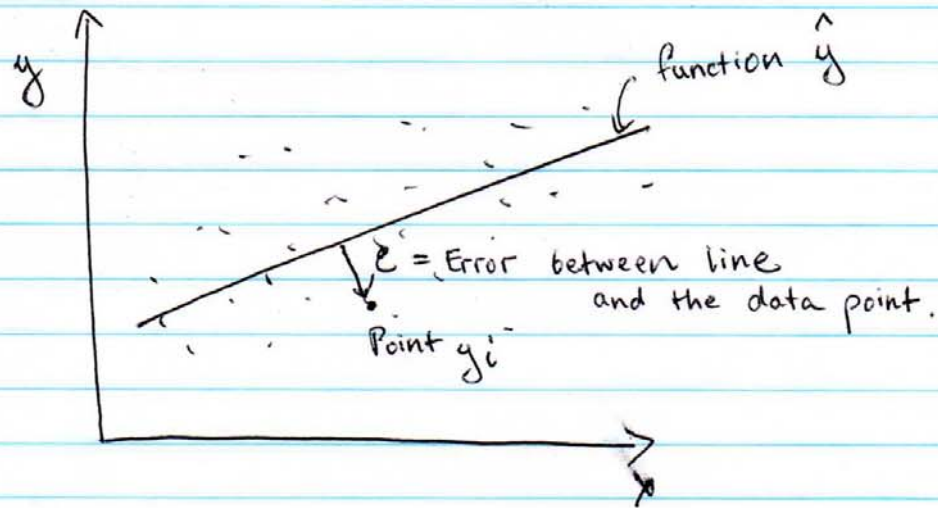 y
function ŷ
ε = Error between line
and the data point.
Point yi
x